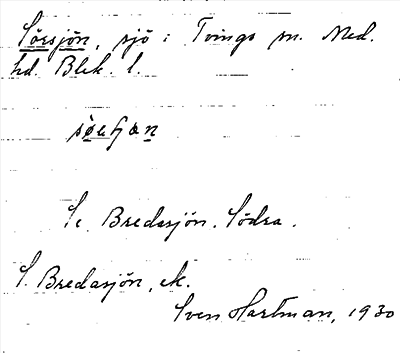 Sörsjön, sjö i Tvings sn. Med.
hd. Blek. l.
Se Bredasjön, Södra.
S. Bredasjön, ek.
Sven Hartman, 1930